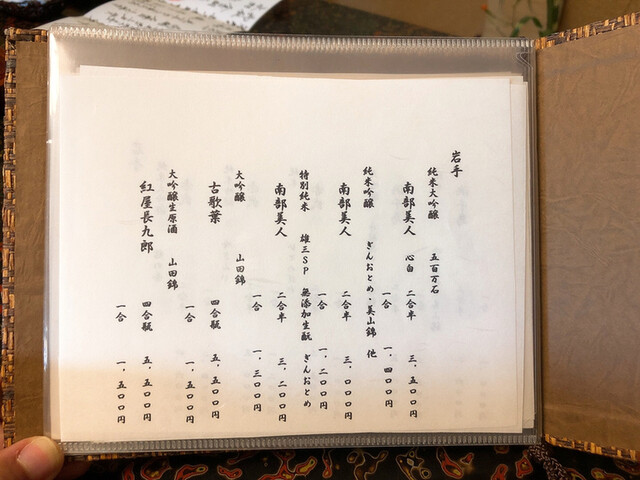 岩手
純米大吟醸 五百万石
南部美人 心白 二合半 三、五〇〇円
一合 一、四〇〇円
純米吟醸 ぎんおとめ・美山錦 他
南部美人 二合半 三、〇〇〇円
一合 一、二〇〇円
特別純米 雄三SP 無添加生酛 ぎんおとめ
南部美人 二合半 三、二〇〇円
一合 一、三〇〇円
大吟醸 山田錦
古歌葉 四合瓶 五、五〇〇円
一合 一、五〇〇円
大吟醸生原酒 山田錦
紅屋長九郎 四合瓶 五、五〇〇円
一合 一、五〇〇円